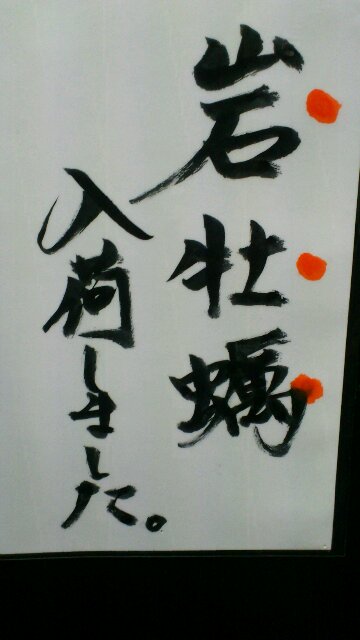 岩牡蠣
入荷しました。